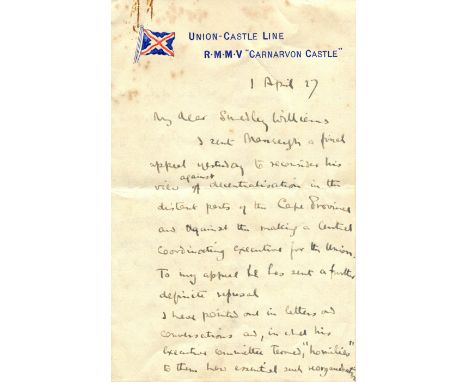 UNION-CASTLE LINE
R·M·M·V "CARNARVON CASTLE"
1 April 27
My dear Smedley Williams
I sent a final
appeal yesterday to reconsider his
view against of decentralisation in the
distant parts of the Cape Province
and against the making a Central
Coordinating executive for the Union.
To my appeal he has sent a further
definite refusal
I have pointed out in letters and
conversations and, in what his
executive committee termed, "homilies"
to them how essential such reorganisation